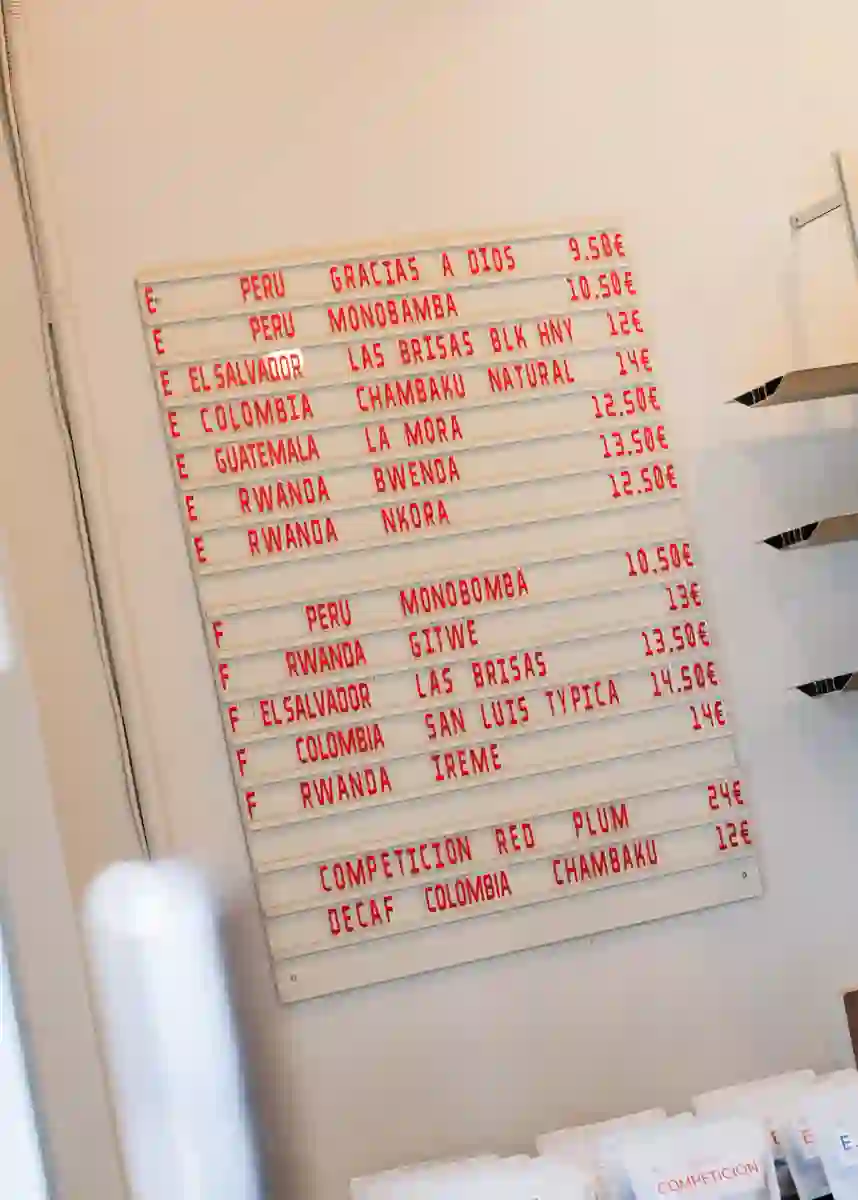 E PERU GRACIAS A DIOS 9.50€
E PERU MONOBAMBA 10.50€
E EL SALVADOR LAS BRISAS BLK HNY 12€
E COLOMBIA CHAMBAKU NATURAL 14€
E GUATEMALA LA MORA 12.50€
E RWANDA BWENDA 13.50€
E RWANDA NKORA 12.50€
F PERU MONOBOMBA 10.50€
F RWANDA GITWE 13€
F EL SALVADOR LAS BRISAS 13.50€
F COLOMBIA SAN LUIS TYPICA 14.50€
F RWANDA IREME 14€
COMPETICION RED PLUM 24€
DECAF COLOMBIA CHAMBAKU 12€
COMPETICION
E
E
E.